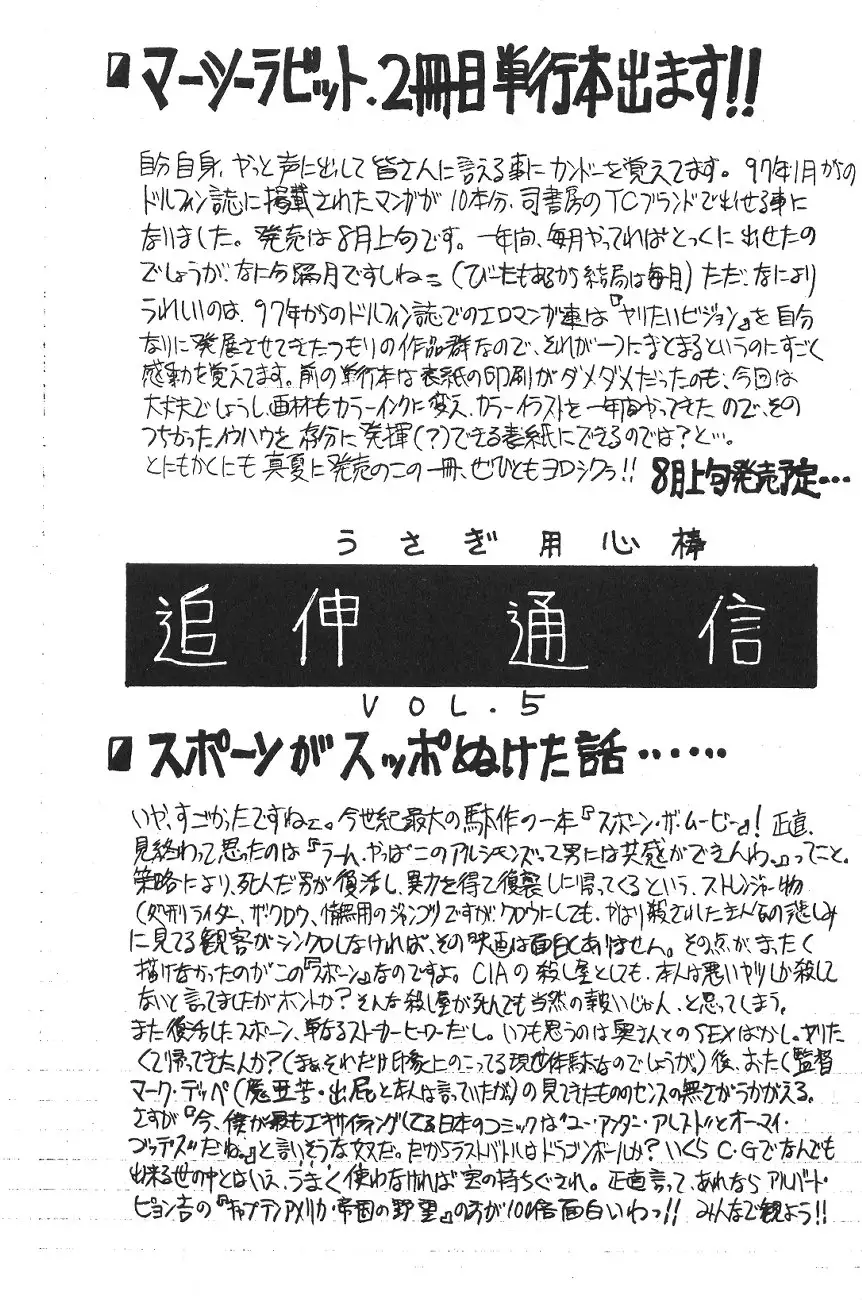 マーシーラビット、2冊目単行本出ます!!
自分自身、やっと声に出して皆さんに言える事にカンドーを覚えてます。97年1月からの
ドルフィン誌に掲載されたマンガが10本分、司書房のTCブランドで出せる事に
なりました。発売は8月上旬です。一年間、毎月やってればとっくに出せたの
でしょうが、なにぶん隔月ですしねー(びーたもあるから結局は毎月)ただ、なにより
うれしいのは、97年からのドルフィン誌でのエロマンガ達は『ヤリたいビジョン』を自分
なりに発展させてきたつもりの作品群なので、それが一つにまとまるというのにすごく
感動を覚えてます。前の単行本は表紙の印刷がダメダメだったのも、今回は
大丈夫でしょうし、画材もカラーインクに変え、カラーイラストを一年間やってきたので、その
つちかったノウハウを存分に発揮(?)できる表紙にできるのでは?と…。
とにもかくにも真夏に発売のこの一冊、ぜひともヨロシクぅ!! 8月上旬発売予定…
うさぎ用心棒
追伸通信
VOL.5
スポーンがスッポぬけた話……
いや、すごかったですねェ。今世紀最大の駄作の一本『スポーン・ザ・ムービー』! 正直、
見終わって思ったのは『うーむ、やっぱこのアルシモンズって男には共感ができんわ。』ってこと。
策略により、死んだ男が復活し、暴力を得て復讐しに帰ってくるという、ストレンジャー物
(処刑ライダー、ザ・クロウ、情無用のジャンゴ)ですが、クロウにしても、やはり殺された主人公の悲しみ
に見てる観客がシンクロしなければ、その映画は面白くありません。その点が、まったく
描けなかったのがこの『スポーン』なのですよ。CIAの殺し屋としても、本人は悪いヤツしか殺して
ないと言ってましたがホントか?そんな殺し屋が死んでも当然の報いじゃん、と思ってしまう。
また復活したスポーン、単なるストーカーヒーローだし。いつも思うのは奥さんとのSEXばかし。ヤリた
くて帰ってきた人か?(まぁそれだけ印象上のこってる現世体駄なのでしょうが。)後、おたく監督
マーク・デッペ(魔亜苦・出屁と本人は言っていたが)の見てきたもののセンスの無さがうかがえる。
さすが『今、僕が最もエキサイティングしてる日本のコミックは“ユー・アンダー・アレスト”とオーマイ・
ゴッデス”だね。』と言いそうな奴だ。だからラストバトルはドラゴンボールか?いくらC・Gでなんでも
出来る世の中とはいえ、うまく使わなければ宝の持ちぐされ。正直言って、あれならアルバート・
ピョン吉の『キャプテンアメリカ・帝国の野望』の方が100倍面白いわっ!! みんなで観よう!!